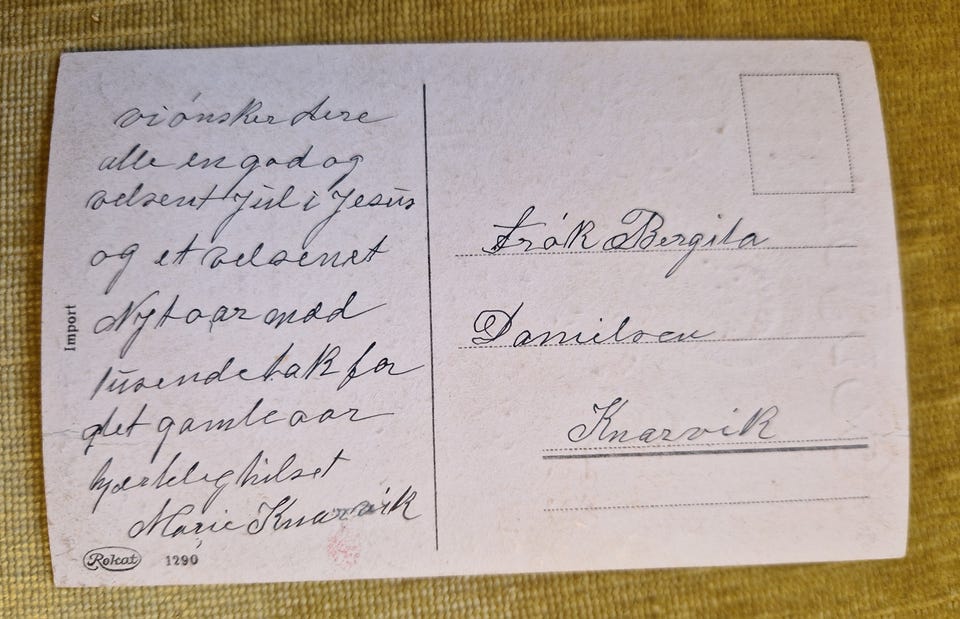 vi ónsker dere
alle en god og
velsent Jul i Jesus
og et velsenet
Nyt aar med
tusende tak for
det gamle aar
hjærteleg hilset
Marie Knarvik
Import
Rokat 1290
Frók Bergita
Danielsen
Knarvik